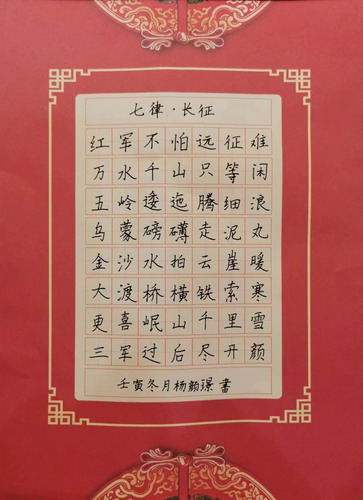 七律·长征
红军不怕远征难
万水千山只等闲
五岭逶迤腾细浪
乌蒙磅礴走泥丸
金沙水拍云崖暖
大渡桥横铁索寒
更喜岷山千里雪
三军过后尽开颜
壬寅冬月杨颜璟书